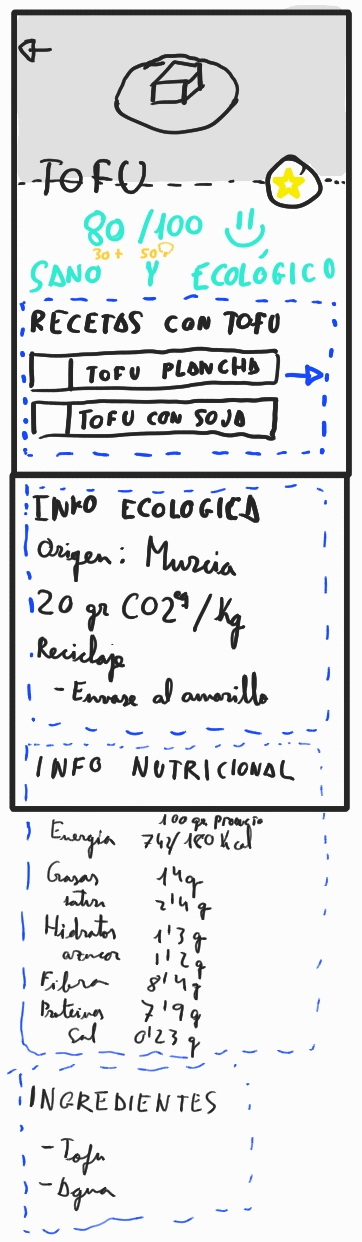 TOFU
80/100
30+ 50
SANO Y ECOLÓGICO
RECETAS CON TOFU
TOFU PLANCHA
TOFU CON SOJA
INFO ECOLOGICA
Origen: Murcia
20 gr CO2eq/Kg
Reciclaje
- Envase al amarillo
INFO NUTRICIONAL
100 gr
Energía 742/180 Kcal
Grasas 14g
satur 2'4g
Hidratos 1'3g
azucar 1'2g
Fibra 8'4g
Proteinas 7'9g
Sal 0'23g
INGREDIENTES
- Tofu
- Agua